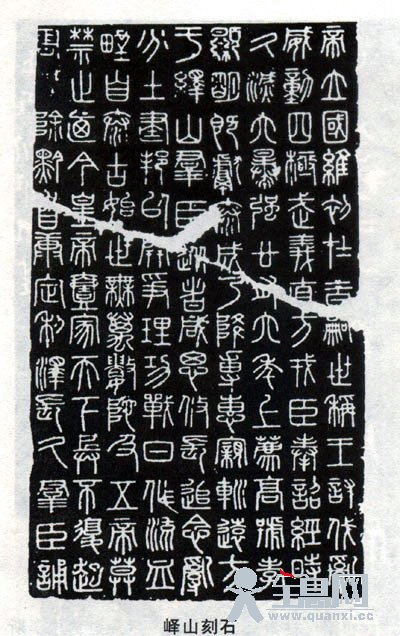 帝立國維初在昔嗣世稱王討伐亂
威動四極武義直方戎臣奉詔經時
久滅六暴強廿有六年上薦高號孝
顯明既獻泰成乃降尃惠寴巡遠方
于繹山群臣從者咸思攸長追念亂
分土建邦以開爭理功戰日作流血
野自泰古始世無萬數陀及五帝莫
禁止廼今皇帝壹家天下兵不復起
害滅除黔首康定利澤長久群臣誦
峄山刻石
全息网
www.quanxi.cc